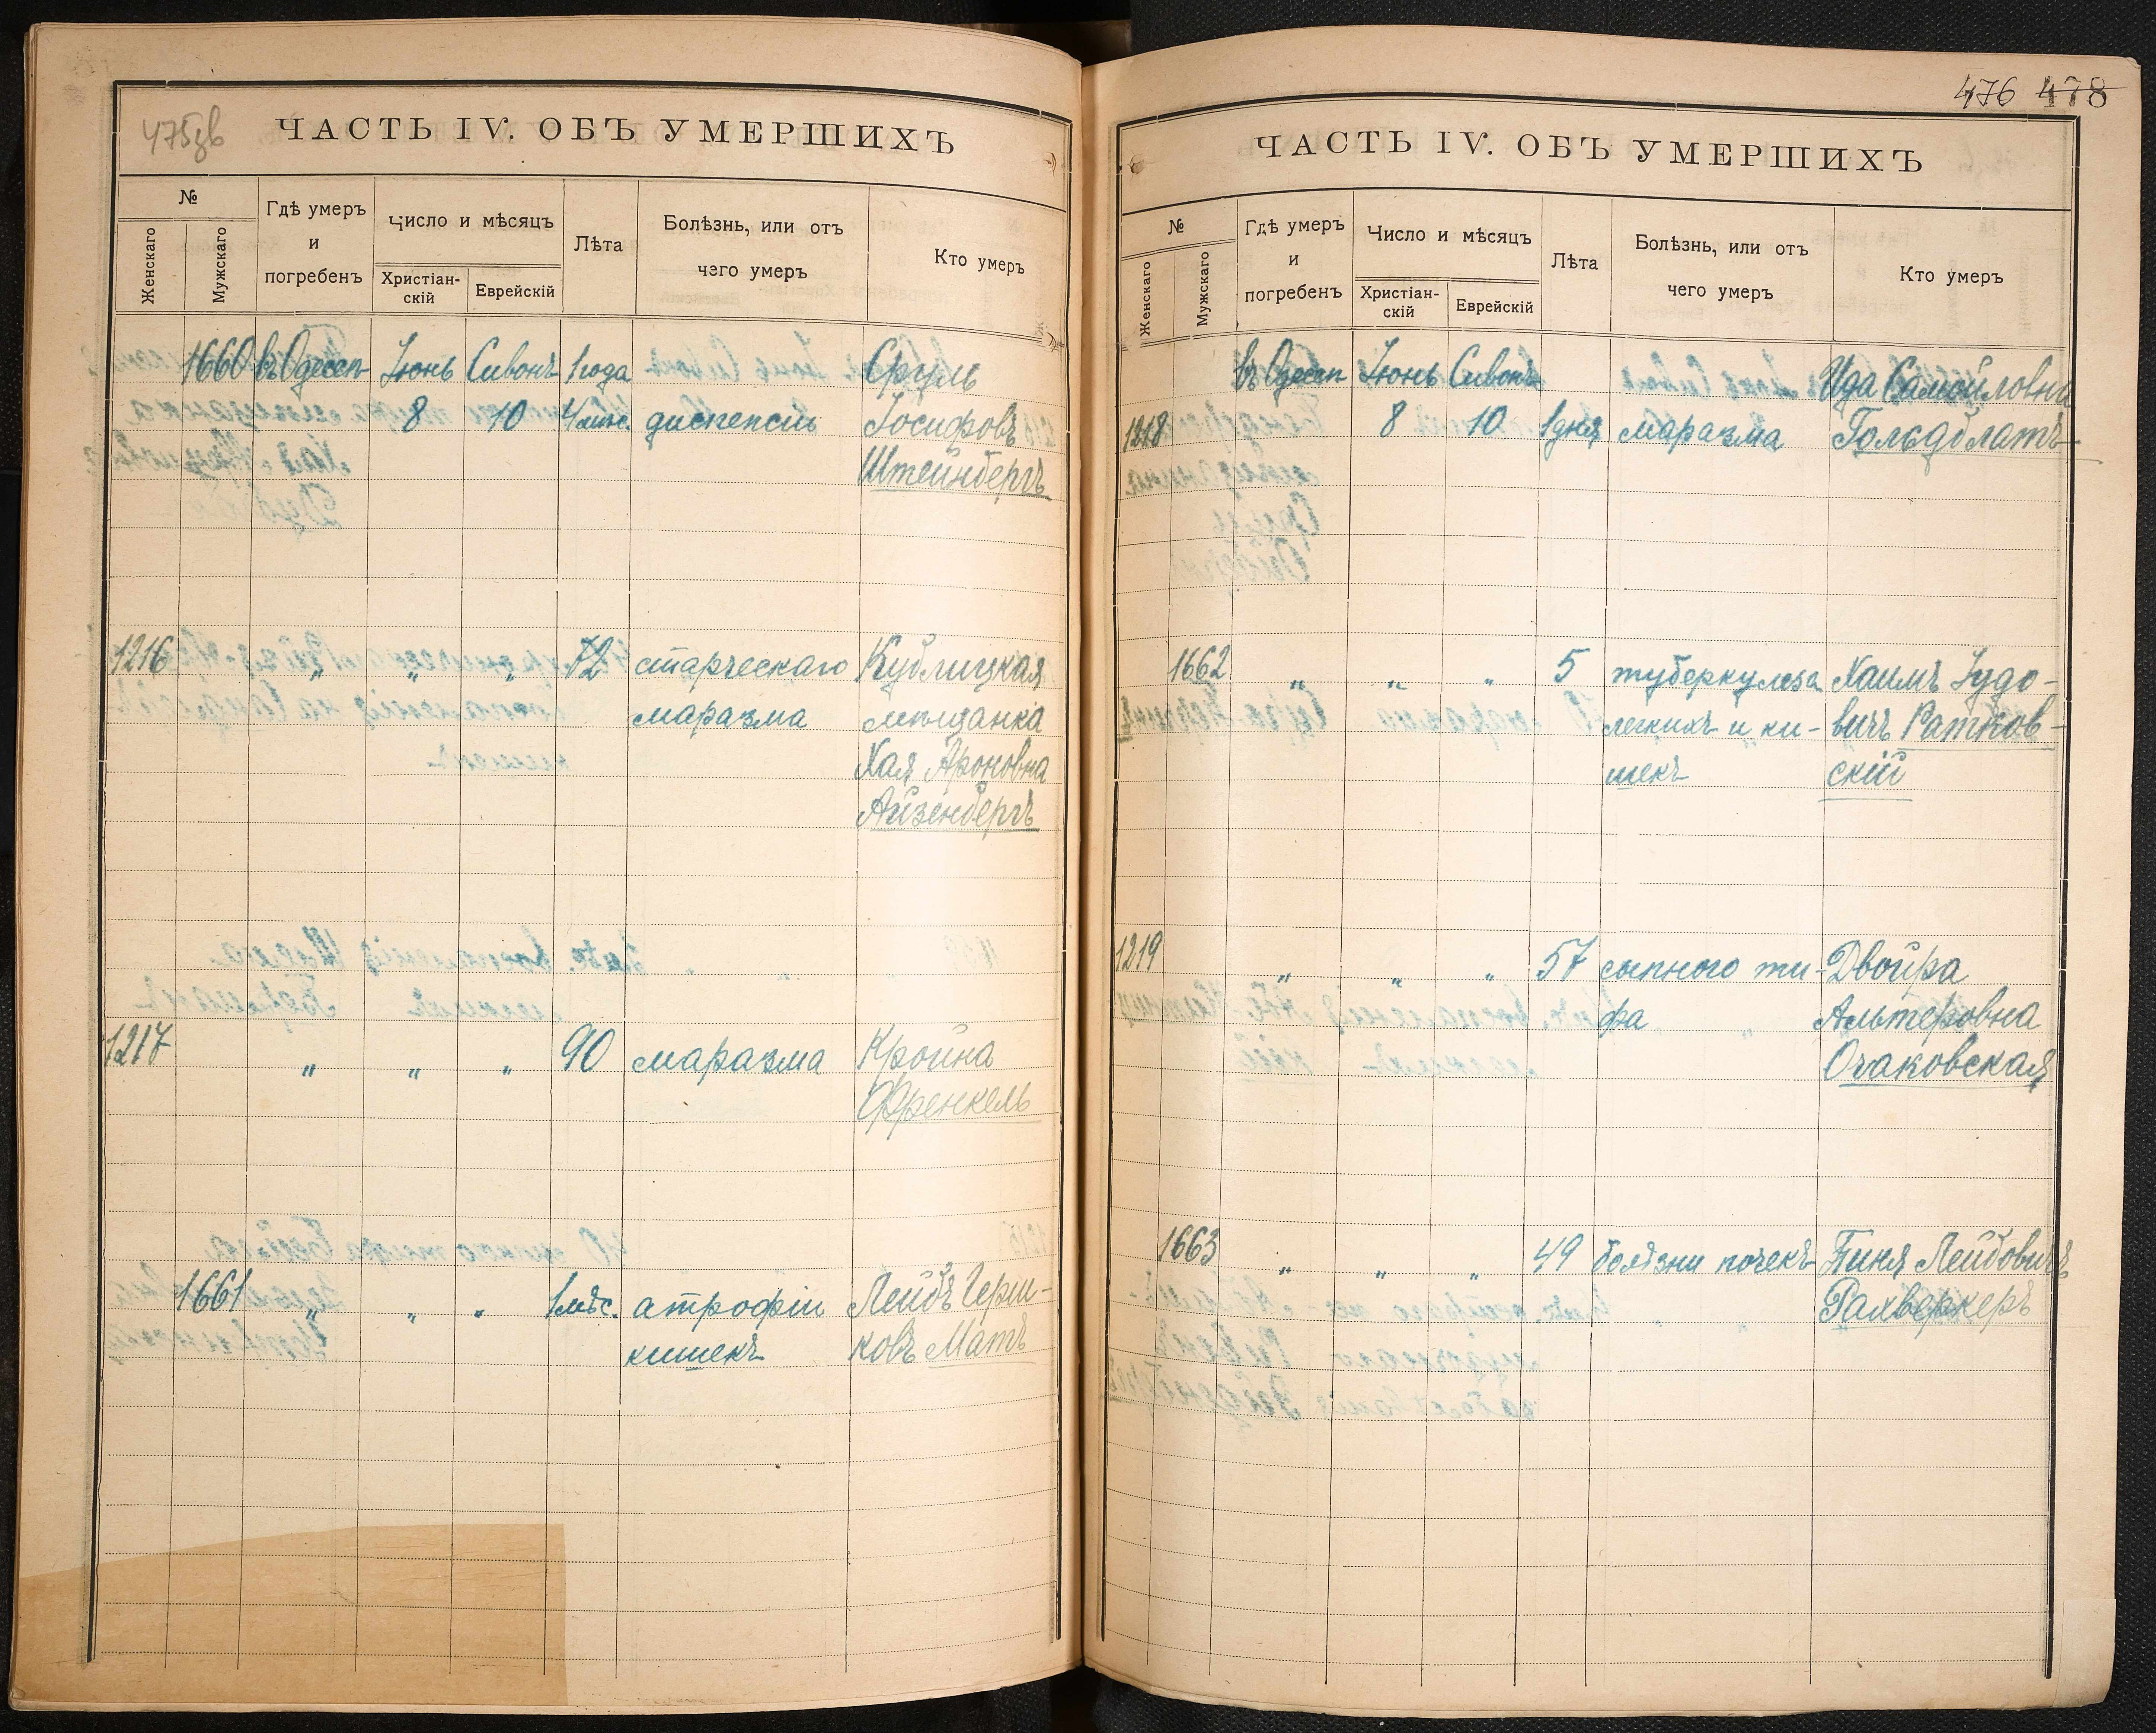 475зв
ЧАСТЬ IV. ОБЪ УМЕРШИХЪ
№
Женскаго
Мужскаго
Гдѣ умеръ
и
погребенъ
Число и мѣсяцъ
Христіан-
скій
Еврейскій
Лѣта
Болѣзнь, или отъ
чего умеръ
Кто умеръ
1660 въ Одессѣ Іюнь Сивонъ 1 года Сруль
8 10 4 мѣс. диспепсіи Іосифовъ
Штейнбергъ
1216 „ „ „ 72 старческаго Кублицкая
маразма мѣщанка
Хая Ароновна
Айзенбергъ
1217 „ „ „ 90 маразма Кройна
Френкель
1661 „ „ „ 1 мѣс. атрофіи Лейбъ Герш-
кишекъ ковъ Матъ
476 478
ЧАСТЬ IV. ОБЪ УМЕРШИХЪ
№
Женскаго
Мужскаго
Гдѣ умеръ
и
погребенъ
Число и мѣсяцъ
Христіан-
скій
Еврейскій
Лѣта
Болѣзнь, или отъ
чего умеръ
Кто умеръ
въ Одессѣ Іюнь Сивонъ Ида Самойловна
1218 8 10 1 дня маразма Гольдблатъ
1662 „ „ „ 5 туберкулеза Хаимъ Іудо-
легкихъ и ки- вичъ Ратнов-
шекъ скій
1219 „ „ „ 57 сыпного ти- Двойра
фа Альтеровна
Очаковская
1663 „ „ „ 49 болѣзни почекъ Пиня Лейбовичъ
Рахверкеръ